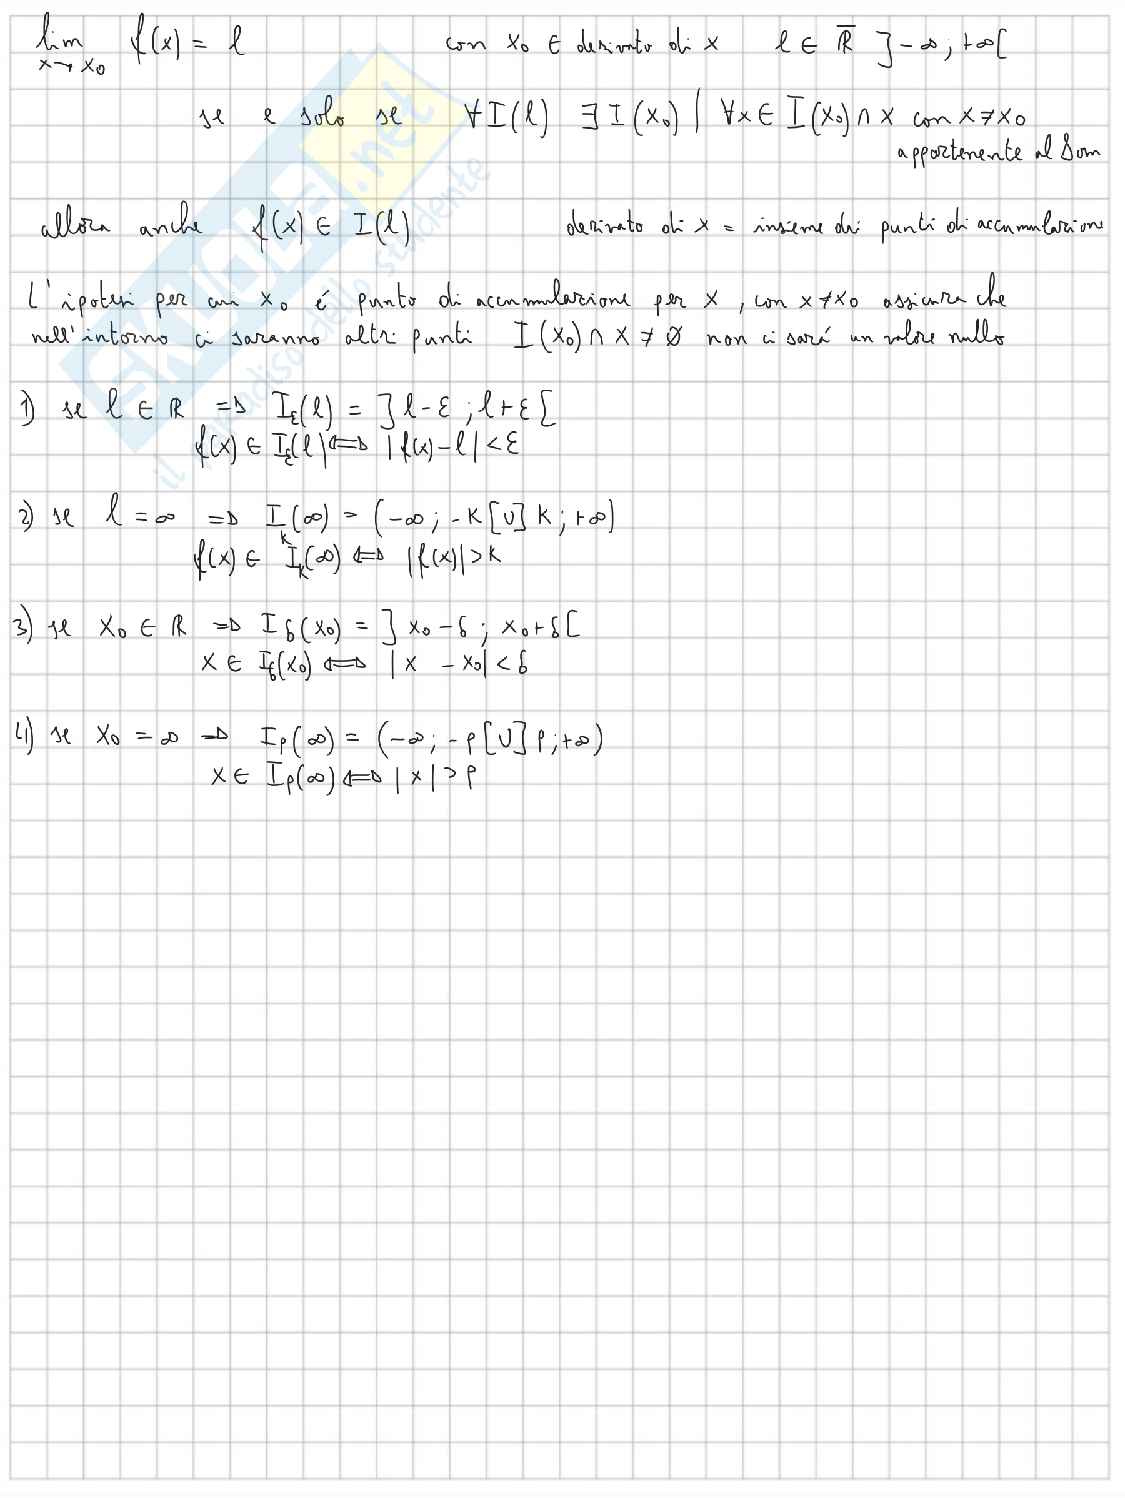 lim f(x) = l con x₀ ∈ derivato di x l ∈ ℝ̅ ]-∞; +∞[
x→x₀
se e solo se ∀I(l) ∃I(x₀) | ∀x∈ I(x₀)∩x con x≠x₀
appartenente al Dom
allora anche f(x) ∈ I(l) derivato di x = insieme dei punti di accumulazione
L'ipotesi per cui x₀ é punto di accumulazione per x, con x≠x₀ assicura che
nell'intorno ci saranno altri punti I(x₀)∩x ≠ ∅ non ci sará un valore nullo
1) se l ∈ ℝ ⇒ I_ε(l) = ]l-ε ; l+ε[
f(x) ∈ I_ε(l) ⇔ |f(x)-l| < ε
2) se l = ∞ ⇒ I_k(∞) = (-∞; -k[∪]k; +∞)
f(x) ∈ I_k(∞) ⇔ |f(x)| > k
3) se x₀ ∈ ℝ ⇒ I_δ(x₀) = ]x₀-δ ; x₀+δ[
x ∈ I_δ(x₀) ⇔ |x - x₀| < δ
4) se x₀ = ∞ ⇒ I_ρ(∞) = (-∞; -ρ[∪]ρ; +∞)
x ∈ I_ρ(∞) ⇔ |x| > ρ
SKUOLA.net
il paradiso dello studente